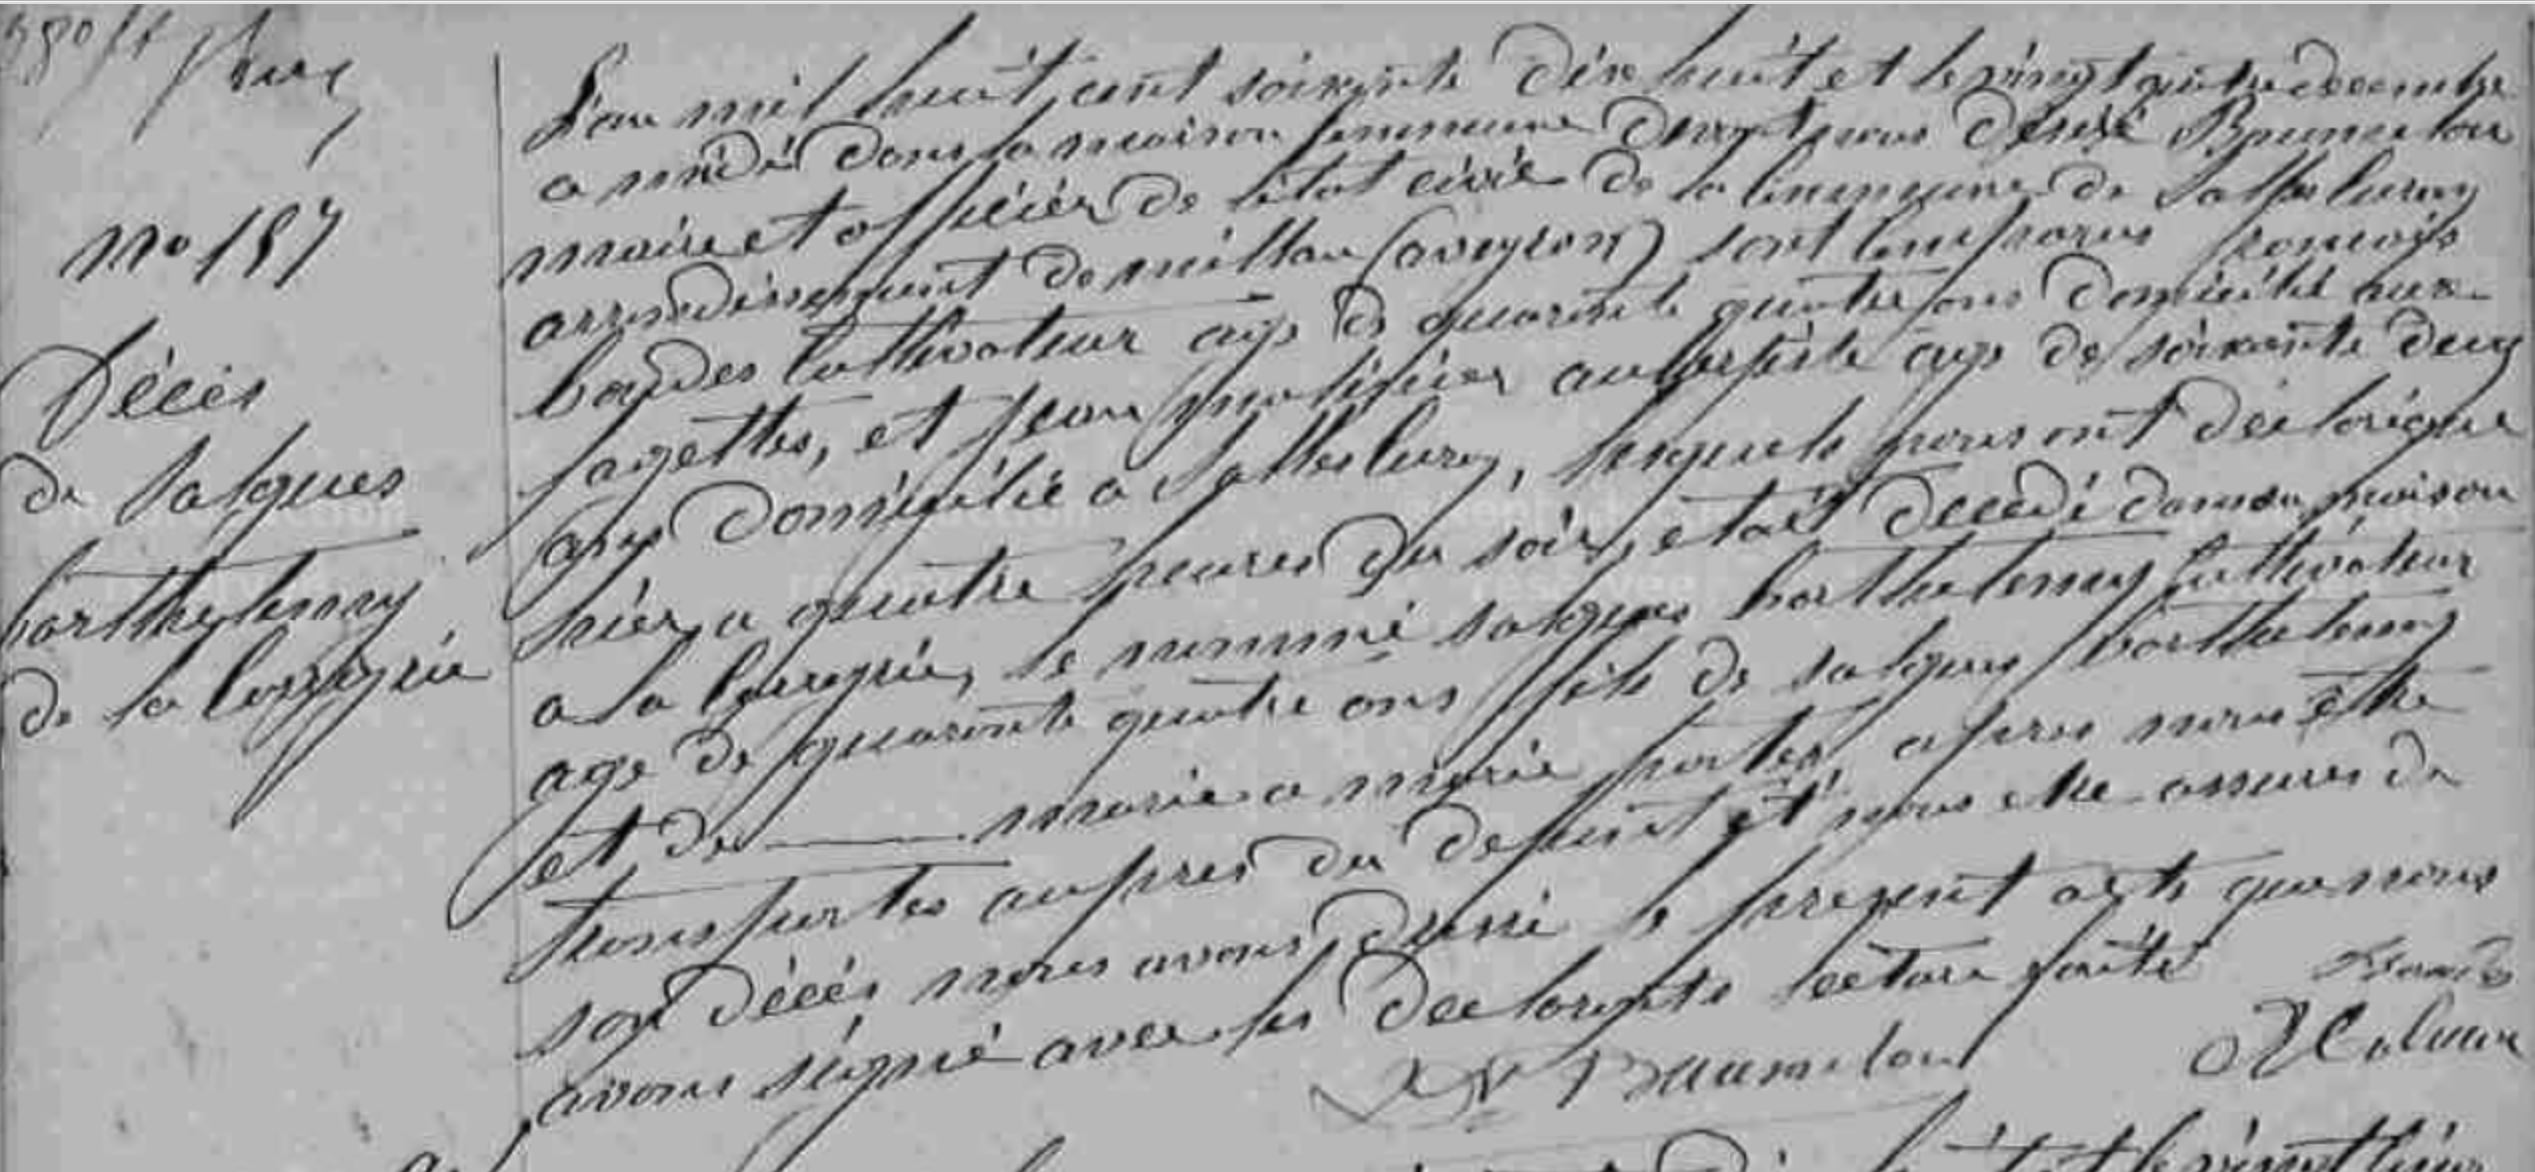 No 157
Décès
de Salgues
barthelemy
de la
L'an mil huit cent soixante dix huit et le vingt quatre decembre
a midi dans la maison commune devant nous Désiré Baumelou
maire et officier de l'état civil de la commune de Salles curan
arrondissement de millau (aveyron) sont comparus francois
cultivateur age de quarante quatre ans domicilié aux
fagettes, et jean aubergiste age de soixante deux
ans domicilié a Salles curan, lesquels nous ont déclaré que
hier a quatre heures du soir, etait decedé dans sa maison
a la le nommé Salgues barthelemy cultivateur
age de quarante quatre ans fils de Salgues barthelemy
et de marié a marie apres nous etre
transportes aupres du defunt et nous etre assures de
son décés nous avons dressé le present acte que nous
avons signé avec les declarants lecture faite
Baumelou